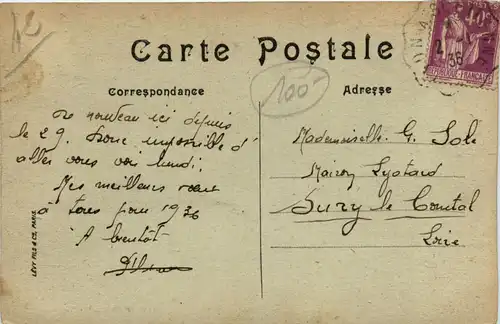 Carte Postale
Correspondance
Adresse
100
40c
36
De nouveau ici depuis
le 29. Donc impossible d'
aller vous voir lundi,
Mes meilleurs vœux
à tous pour 1936
A bientôt
Mademoiselle G. Sole
Maison
Sury le Comtal
Loire
LÉVY FILS & Cie, PARIS